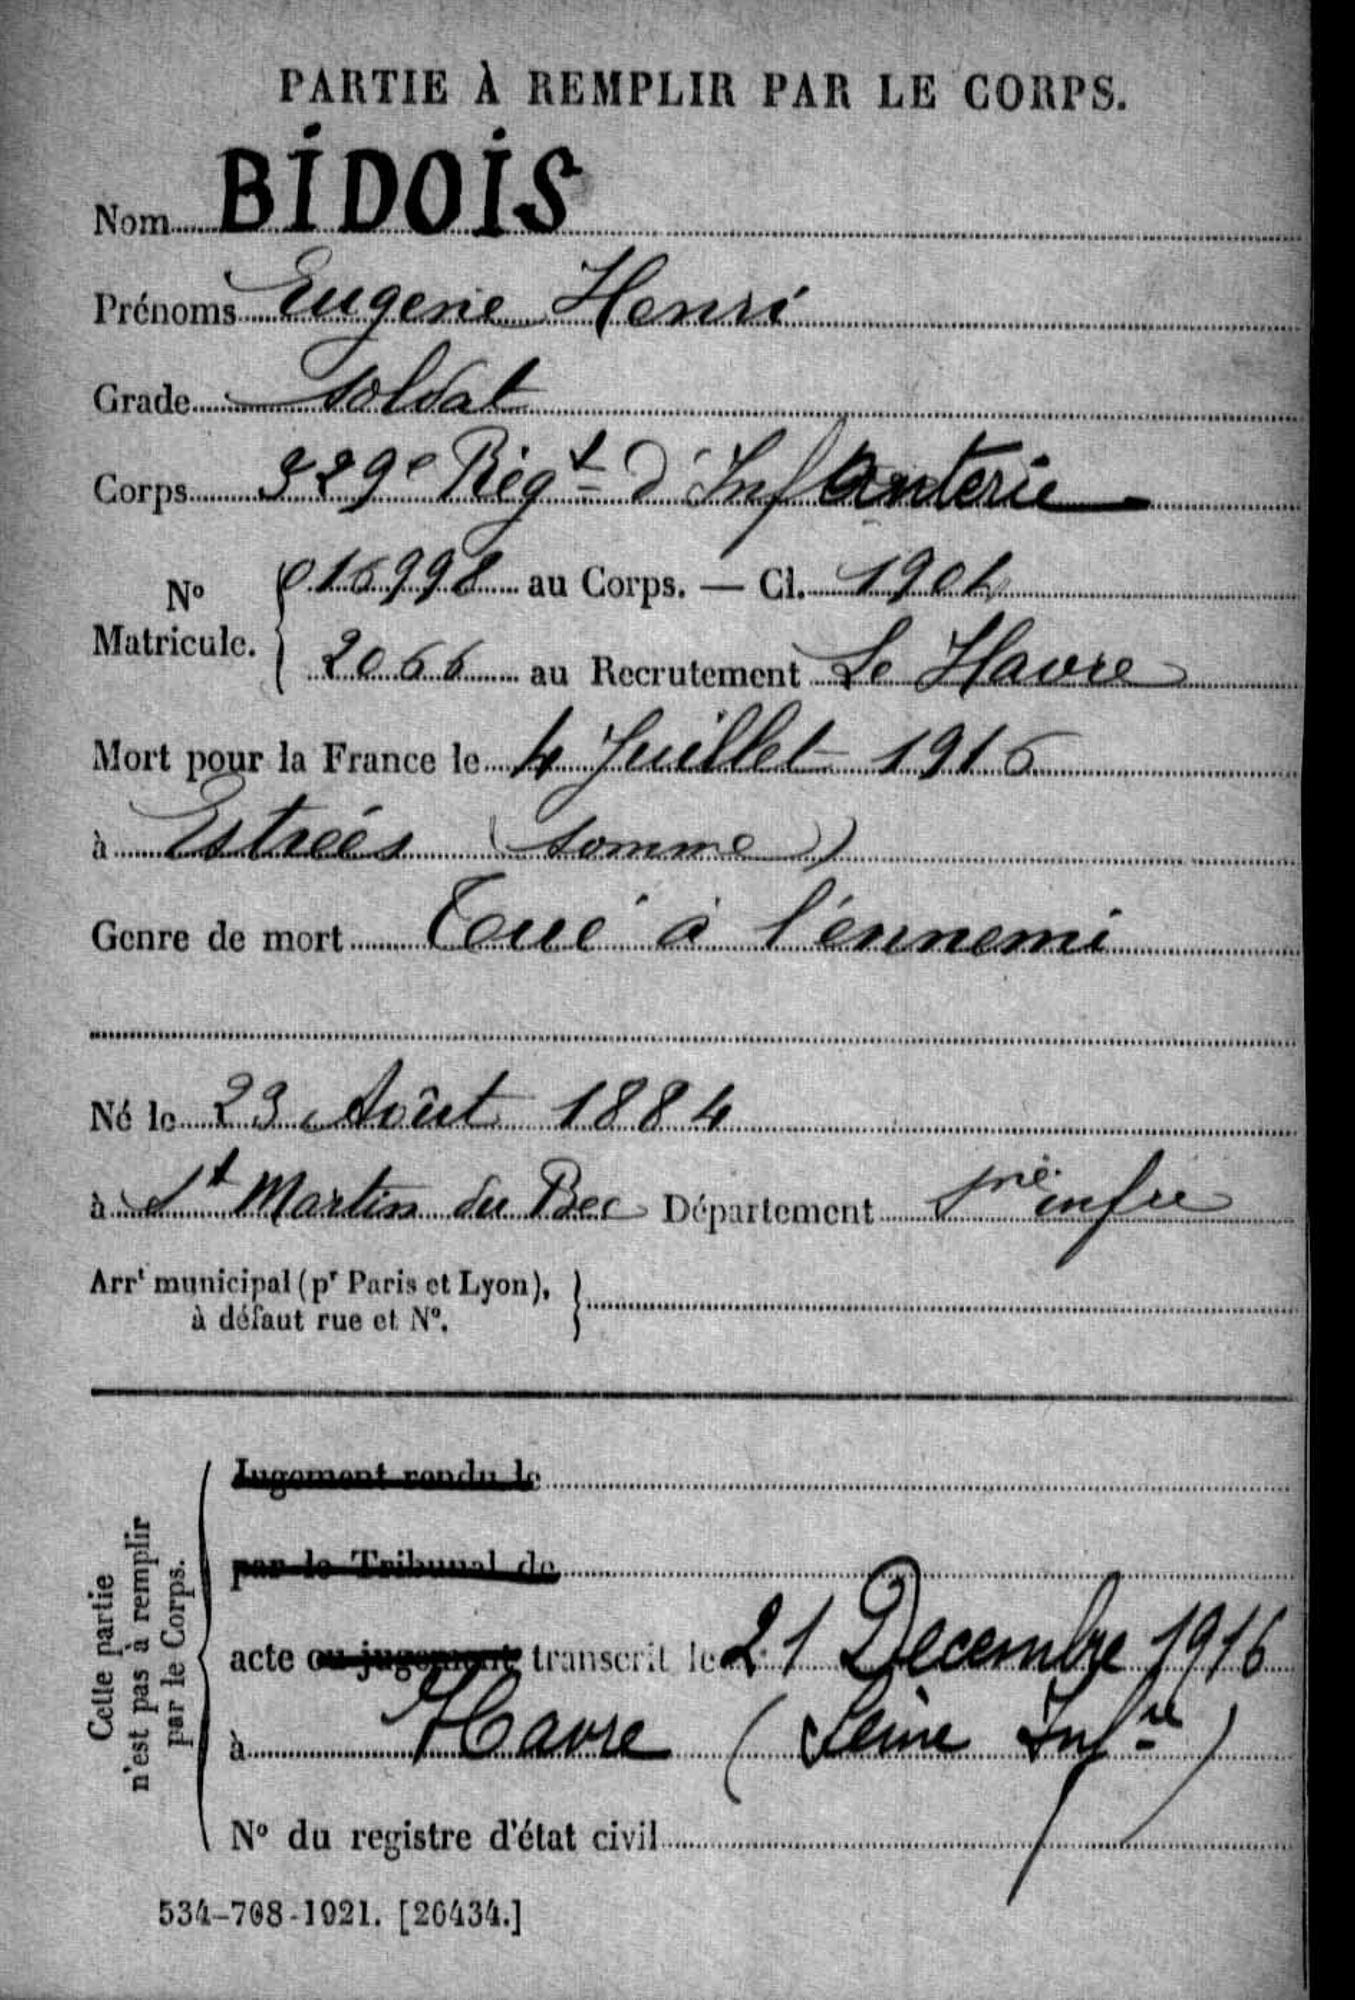 PARTIE À REMPLIR PAR LE CORPS.
Nom BIDOIS
Prénoms Eugene Henri
Grade soldat
Corps 329e Régt d'Infanterie
No Matricule. 016998 au Corps. — Cl. 1904
2066 au Recrutement Le Havre
Mort pour la France le 4 Juillet 1916
à Estrées (Somme)
Genre de mort Tué à l'ennemi
Né le 23 Août 1884
à St Martin du Bec Département Sne infre
Arrt municipal (pr Paris et Lyon),
à défaut rue et No.
Cette partie
n'est pas à remplir
par le Corps.
Jugement rendu le
par le Tribunal de
acte ou jugement transcrit le 21 Decembre 1916
à Havre (Seine Infre)
No du registre d'état civil
534-708-1921. [26434.]